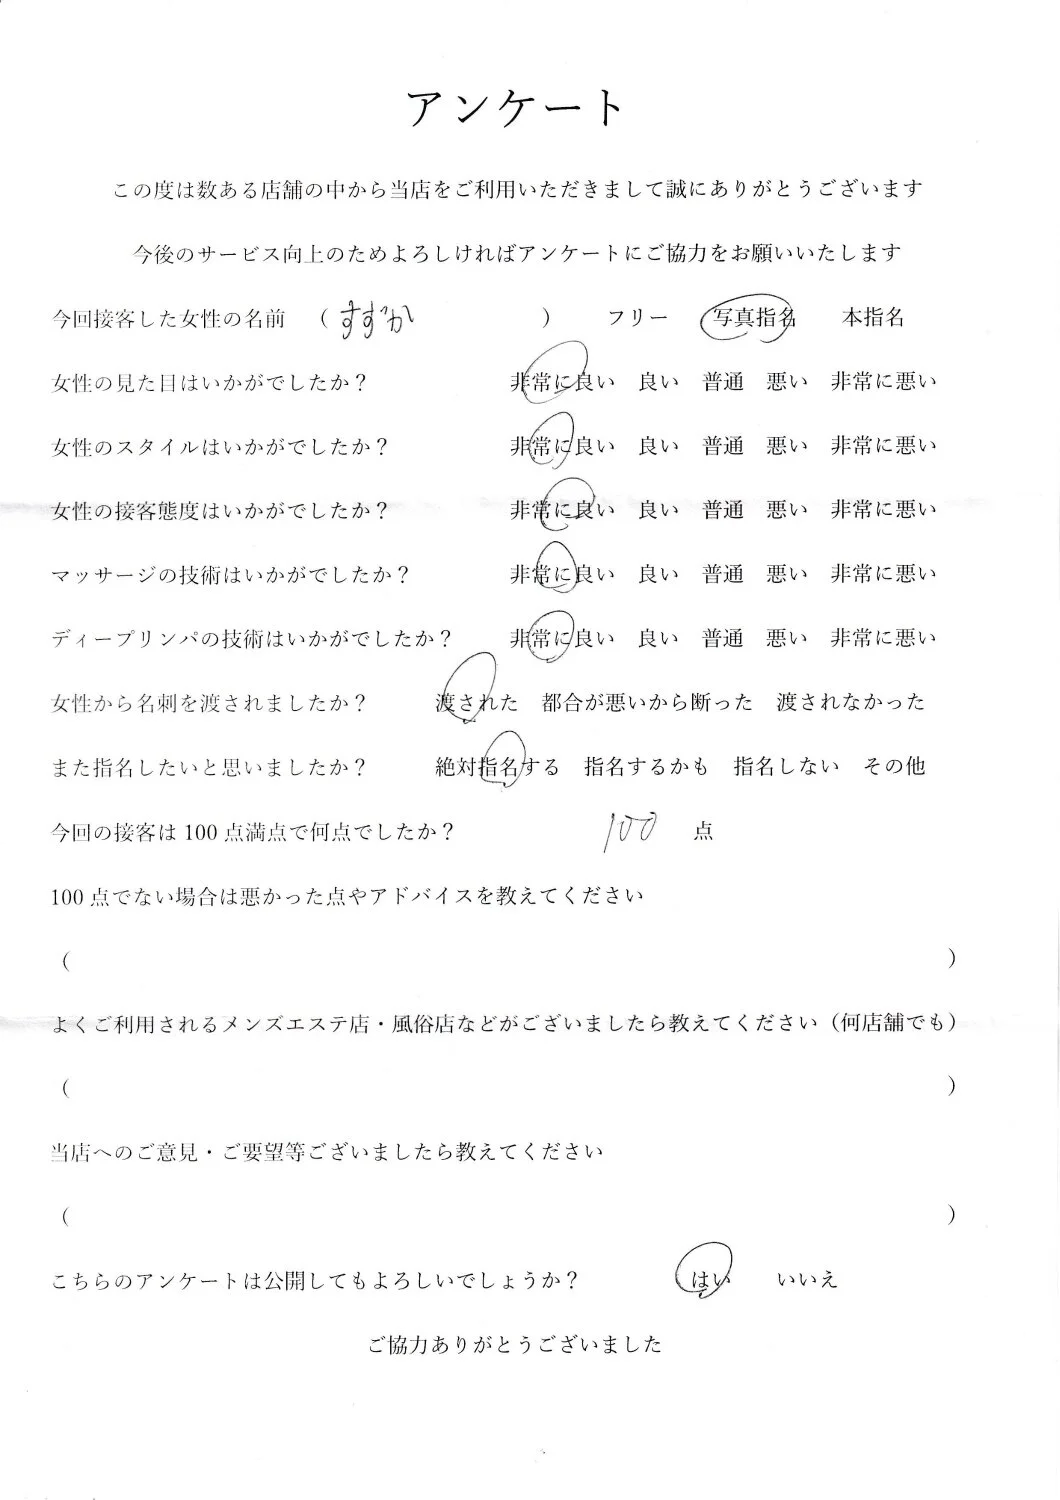 アンケート
この度は数ある店舗の中から当店をご利用いただきまして誠にありがとうございます
今後のサービス向上のためよろしければアンケートにご協力をお願いいたします
今回接客した女性の名前 （ すずか ） フリー 写真指名 本指名
女性の見た目はいかがでしたか？ 非常に良い 良い 普通 悪い 非常に悪い
女性のスタイルはいかがでしたか？ 非常に良い 良い 普通 悪い 非常に悪い
女性の接客態度はいかがでしたか？ 非常に良い 良い 普通 悪い 非常に悪い
マッサージの技術はいかがでしたか？ 非常に良い 良い 普通 悪い 非常に悪い
ディープリンパの技術はいかがでしたか？ 非常に良い 良い 普通 悪い 非常に悪い
女性から名刺を渡されましたか？ 渡された 都合が悪いから断った 渡されなかった
また指名したいと思いましたか？ 絶対指名する 指名するかも 指名しない その他
今回の接客は 100 点満点で何点でしたか？ 100 点
100 点でない場合は悪かった点やアドバイスを教えてください
（ ）
よくご利用されるメンズエステ店・風俗店などがございましたら教えてください（何店舗でも）
（ ）
当店へのご意見・ご要望等ございましたら教えてください
（ ）
こちらのアンケートは公開してもよろしいでしょうか？ はい いいえ
ご協力ありがとうございました